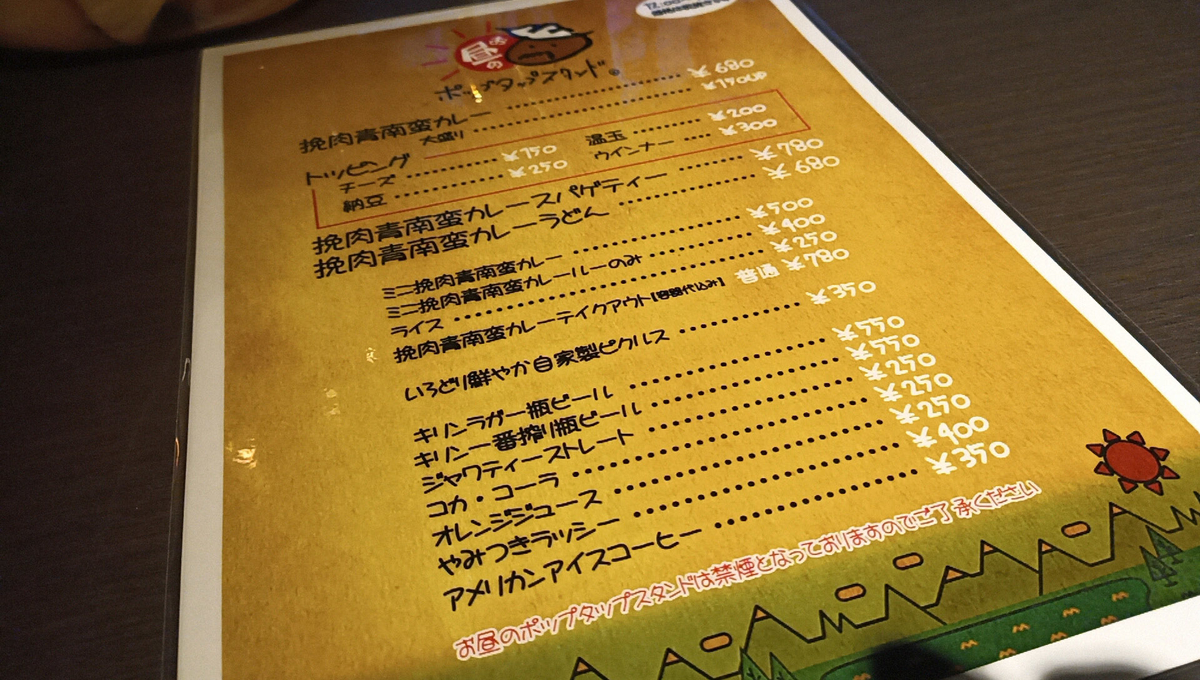 お昼の
ポップタップスタンド。
挽肉青南蛮カレー ¥680
大盛り ¥150UP
トッピング
チーズ ¥150 温玉 ¥200
納豆 ¥250 ウインナー ¥300
挽肉青南蛮カレースパゲティー ¥780
挽肉青南蛮カレーうどん ¥680
ミニ挽肉青南蛮カレー ¥500
ミニ挽肉青南蛮カレールーのみ ¥400
ライス ¥250
挽肉青南蛮カレーテイクアウト【容器代込み】 普通 ¥780
いろどり鮮やか自家製ピクルス ¥350
キリンラガー瓶ビール ¥550
キリン一番搾り瓶ビール ¥550
ジャワティーストレート ¥250
コカ・コーラ ¥250
オレンジジュース ¥250
やみつきラッシー ¥400
アメリカンアイスコーヒー ¥350
お昼のポップタップスタンドは禁煙となっておりますのでご了承ください